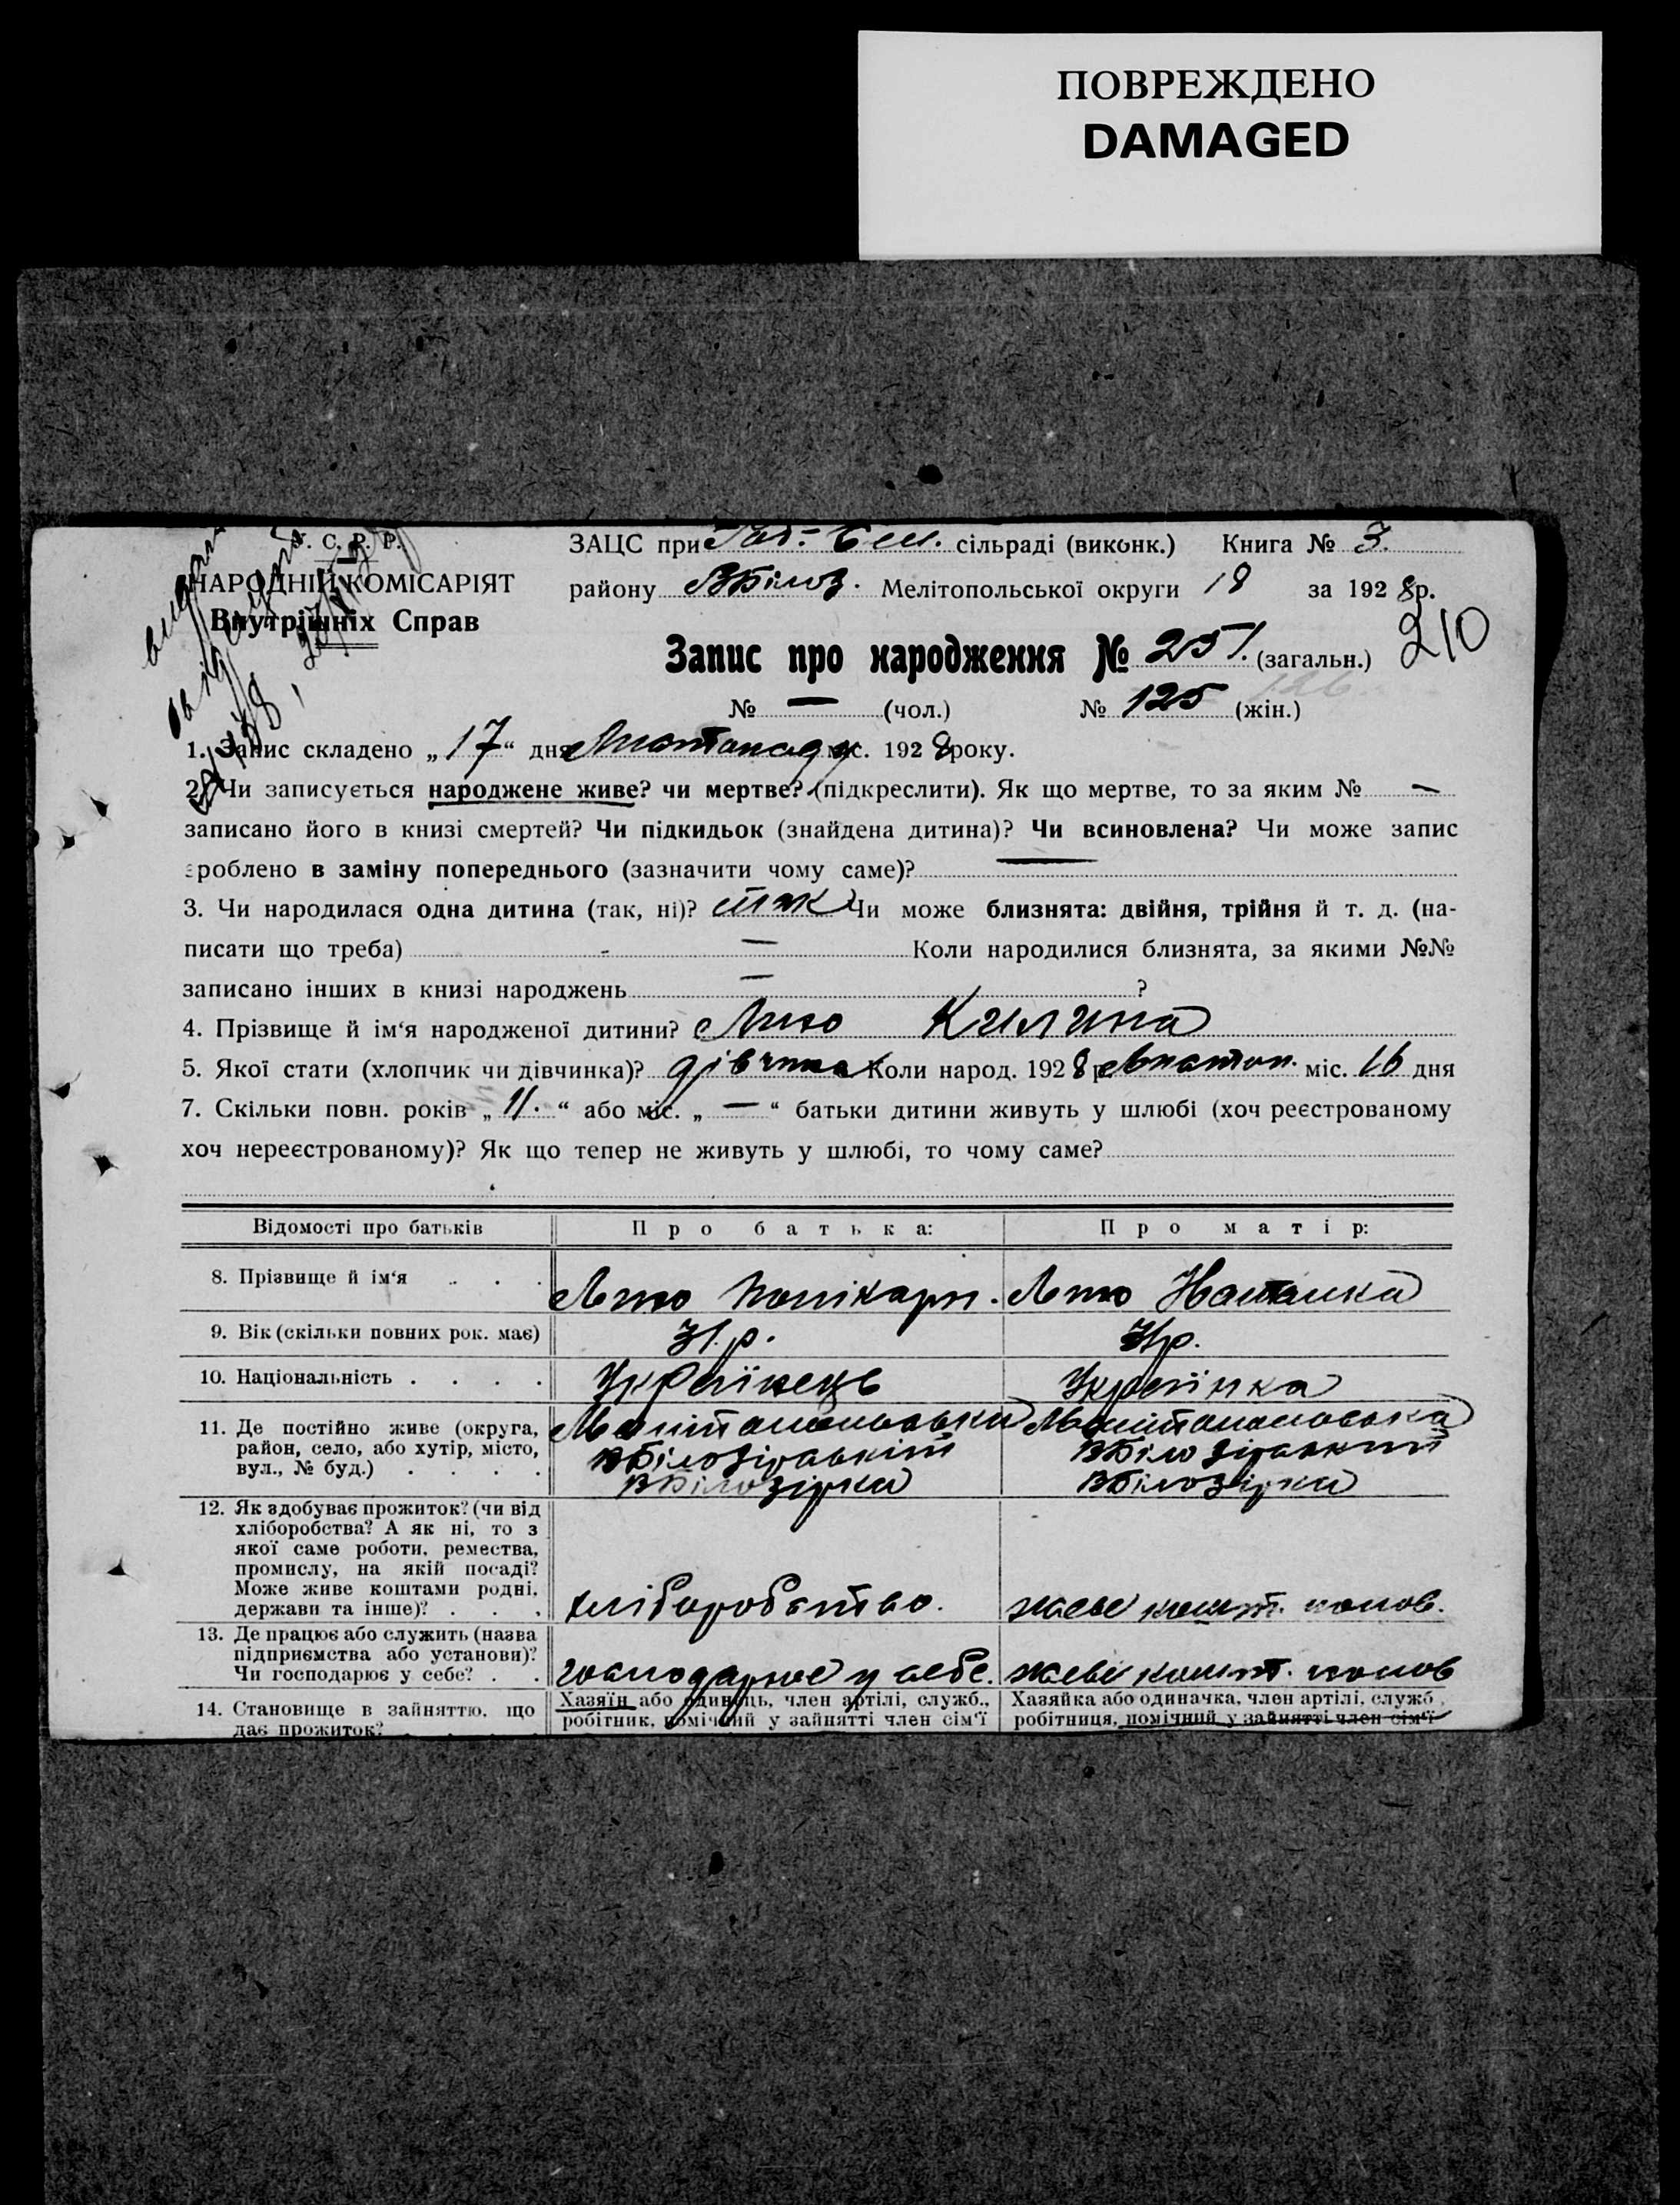 ПОВРЕЖДЕНО
DAMAGED
У. С. Р. Р.
НАРОДНІЙ КОМІСАРІЯТ
Внутрішніх Справ
ЗАЦС при сільраді (виконк.) Книга № 3.
району ВБілоз. Мелітопольської округи 18 за 1928 р.
210
Запис про народження № 251. (загальн.)
№ — (чол.) № 125 (жін.)
1. Запис складено „17“ дня Листопаду міс. 1928 року.
2. Чи записується народжене живе? чи мертве? (підкреслити). Як що мертве, то за яким № —
записано його в книзі смертей? Чи підкидьок (знайдена дитина)? Чи всиновлена? Чи може запис
зроблено в заміну попереднього (зазначити чому саме)? —
3. Чи народилася одна дитина (так, ні)? так Чи може близнята: двійня, трійня й т. д. (на-
писати що треба) — Коли народилися близнята, за якими №№
записано інших в книзі народжень — ?
4. Прізвище й ім‘я народженої дитини? Лито Килина
5. Якої стати (хлопчик чи дівчинка)? дівчинка Коли народ. 1928 р. Листоп. міс. 16 дня
7. Скільки повн. років „11.“ або міс. „—“ батьки дитини живуть у шлюбі (хоч реєстрованому
хоч нереєстрованому)? Як що тепер не живуть у шлюбі, то чому саме?
Відомості про батьків Про батька: Про матір:
8. Прізвище й ім‘я Лито Полікарп. Лито Наталка
9. Вік (скільки повних рок. має) 31 р. р.
10. Національність Українець Українка
11. Де постійно живе (округа,
район, село, або хутір, місто,
вул., № буд.)
Мелітопольська Мелітопольська
ВБілозірський ВБілозірський
ВБілозірка ВБілозірка
12. Як здобуває прожиток? (чи від
хліборобства? А як ні, то з
якої саме роботи, ремества,
промислу, на якій посаді?
Може живе коштами родні,
держави та інше)?
хліборобство. живе кошт. чолов.
13. Де працює або служить (назва
підприємства або установи)?
Чи господарює у себе?
господарює у себе. живе кошт. чолов
14. Становище в зайняттю, що
дає прожиток?
Хазяїн або одинець, член артілі, служб.,
робітник, помічний у зайнятті член сім‘ї
Хазяйка або одиначка, член артілі, служб.,
робітниця, помічний у зайнятті член сім‘ї